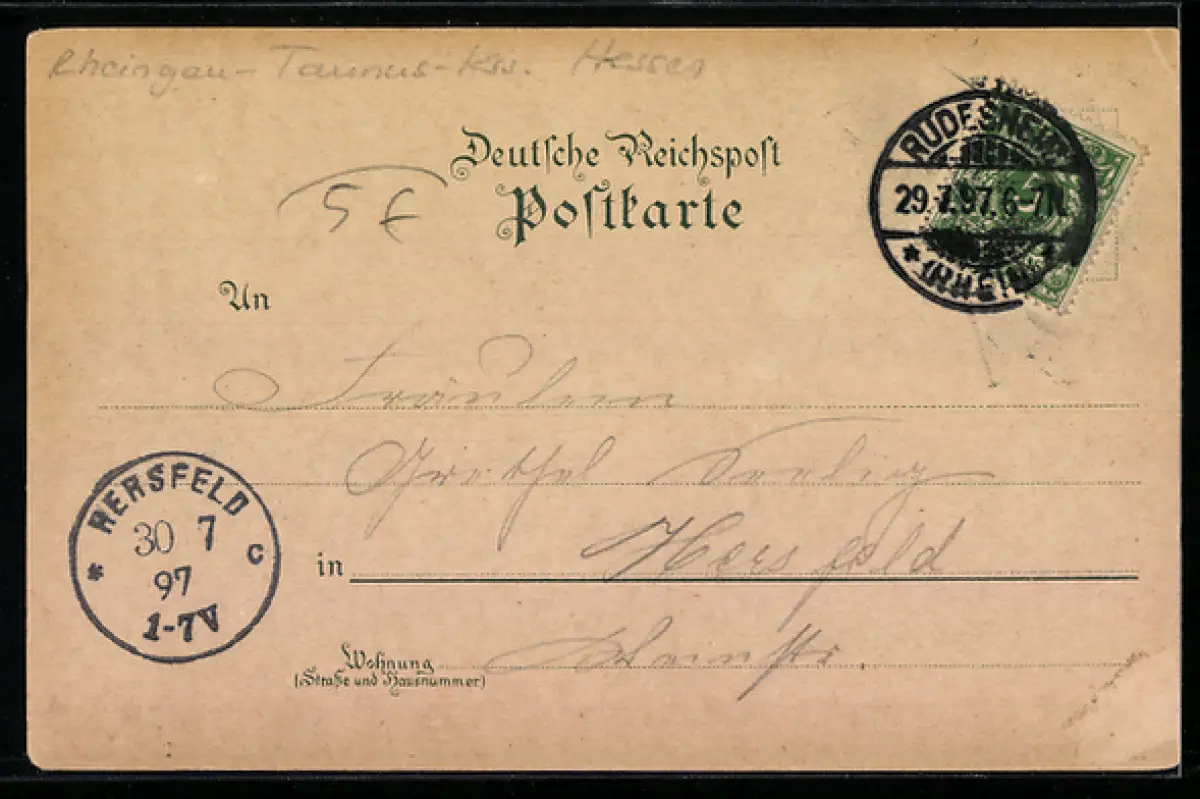 Rheingau-Taunus-Krs. Hessen
Deutsche Reichspost
Postkarte
5 €
RÜDESHEIM
29.7.97.6-7N.
* (RHEIN) *
An
Fräulein
Grethel
Hersfeld
in
HERSFELD
30 7
97
* C
1-7V
Wohnung
(Straße und Hausnummer)